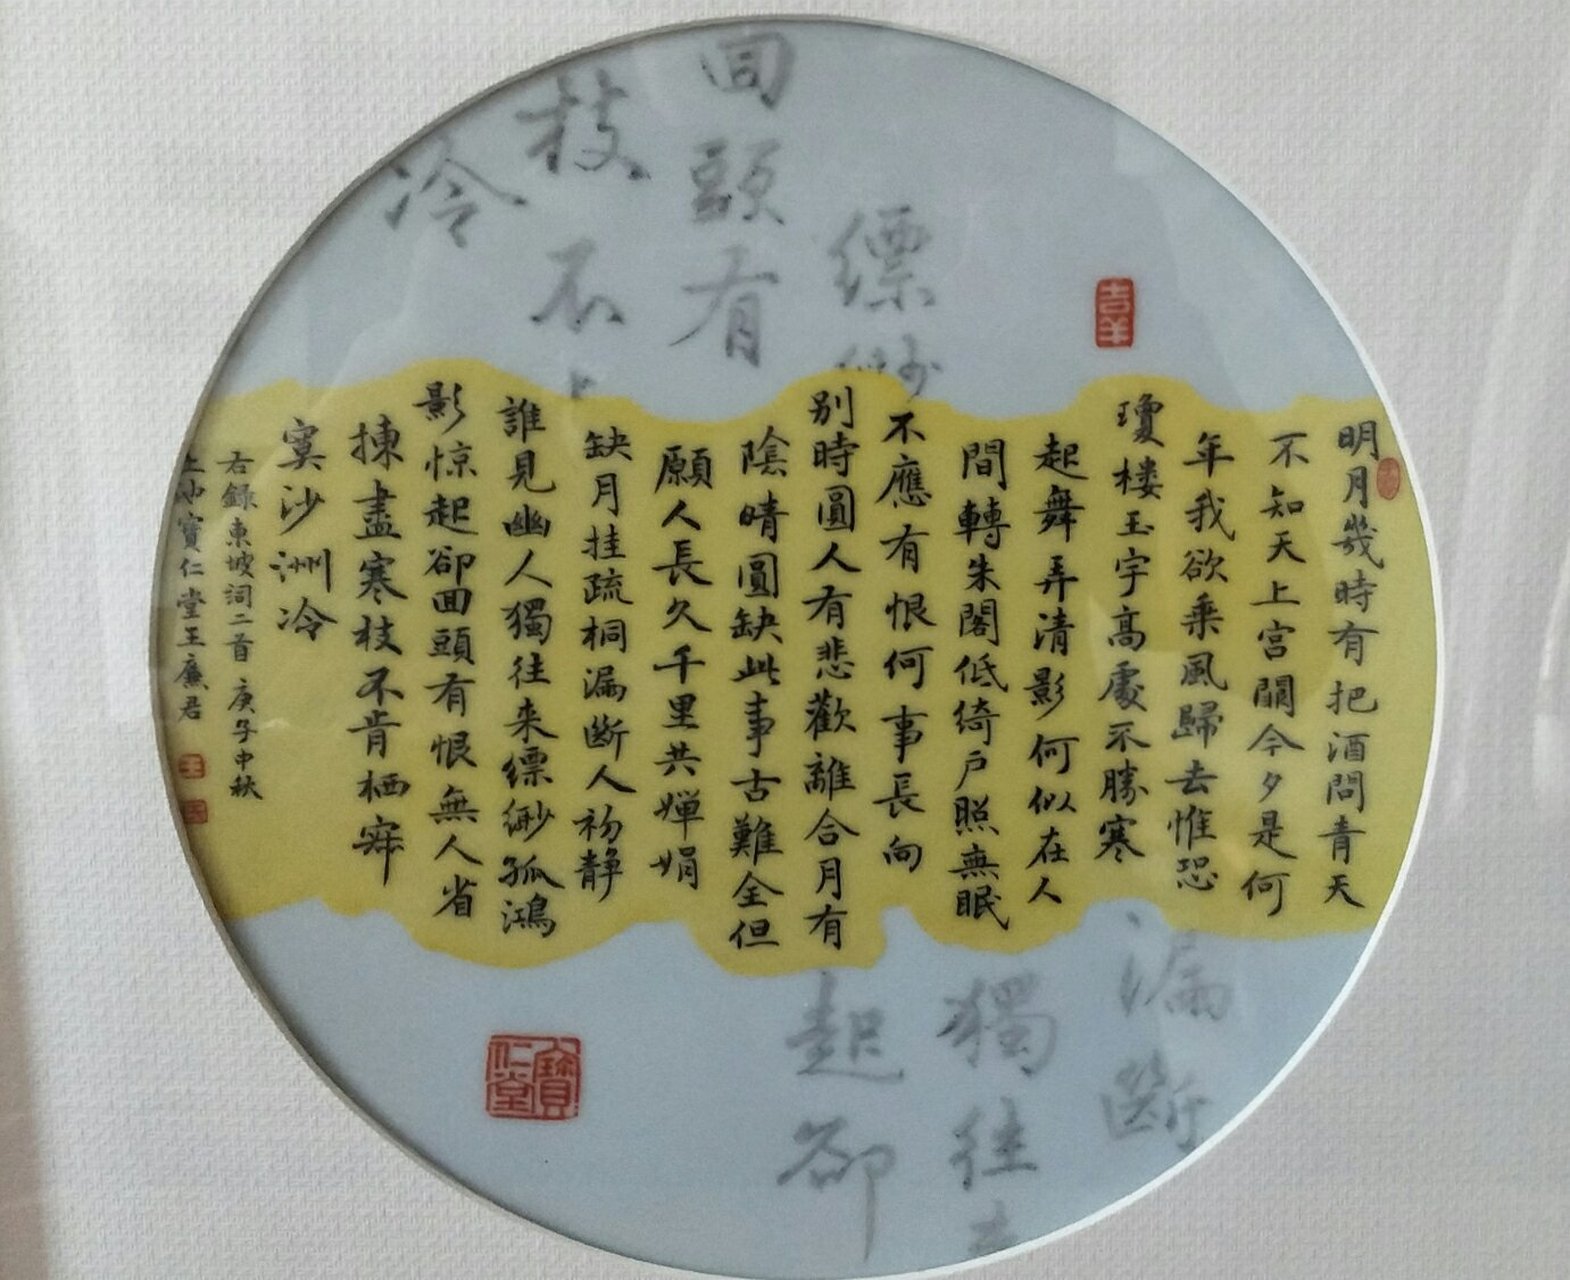 明月幾時有把酒問青天
不知天上宮闕今夕是何
年我欲乘風歸去惟恐
瓊楼玉宇高處不勝寒
起舞弄清影何似在人
間轉朱閣低綺户照無眠
不應有恨何事長向
别時圓人有悲歡離合月有
陰晴圓缺此事古難全但
願人長久千里共嬋娟
缺月挂疏桐漏断人初静
誰見幽人獨往来缥缈孤鴻
影惊起卻回頭有恨無人省
揀盡寒枝不肯栖
寞沙洲冷
右錄東坡詞二首庚子中秋
寶仁堂王廉君
吉羊
寶仁堂
王
缥缈
回頭有
枝不
冷
漏斷
獨往
起卻